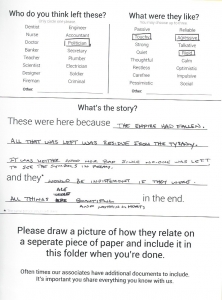 Who do you think left these?
What were they like?
Dentist Engineer
Nurse Accountant
Doctor Politician
Banker Secretary
Teacher Plumber
Scientist Electrician
Designer Soldier
Fireman Criminal
Other:
Passive Reliable
Touchy Agressive
Strong Talkative
Quiet Rigid
Thoughtful Calm
Restless Optimistic
Carefree Impulsive
Pessimistic Social
Other:
What's the story?
These were here because THE EMPIRE HAD FALLEN.
ALL THAT WAS LEFT WAS RESIDUE FROM THE TYRANY.
IT WAS NEITHER GOOD NOR BAD SINCE NO ONE WAS LEFT
TO SEE THE SYMBOLS
and they WOULD BE INDIFFERENT IF THEY WERE.
ALL THINGS ARE BEAUTIFUL in the end.
Please draw a picture of how they relate on
a seperate piece of paper and include it in
this folder when you're done.
Often times our associates have additional documents to include.
It's important you share everything you know with us.